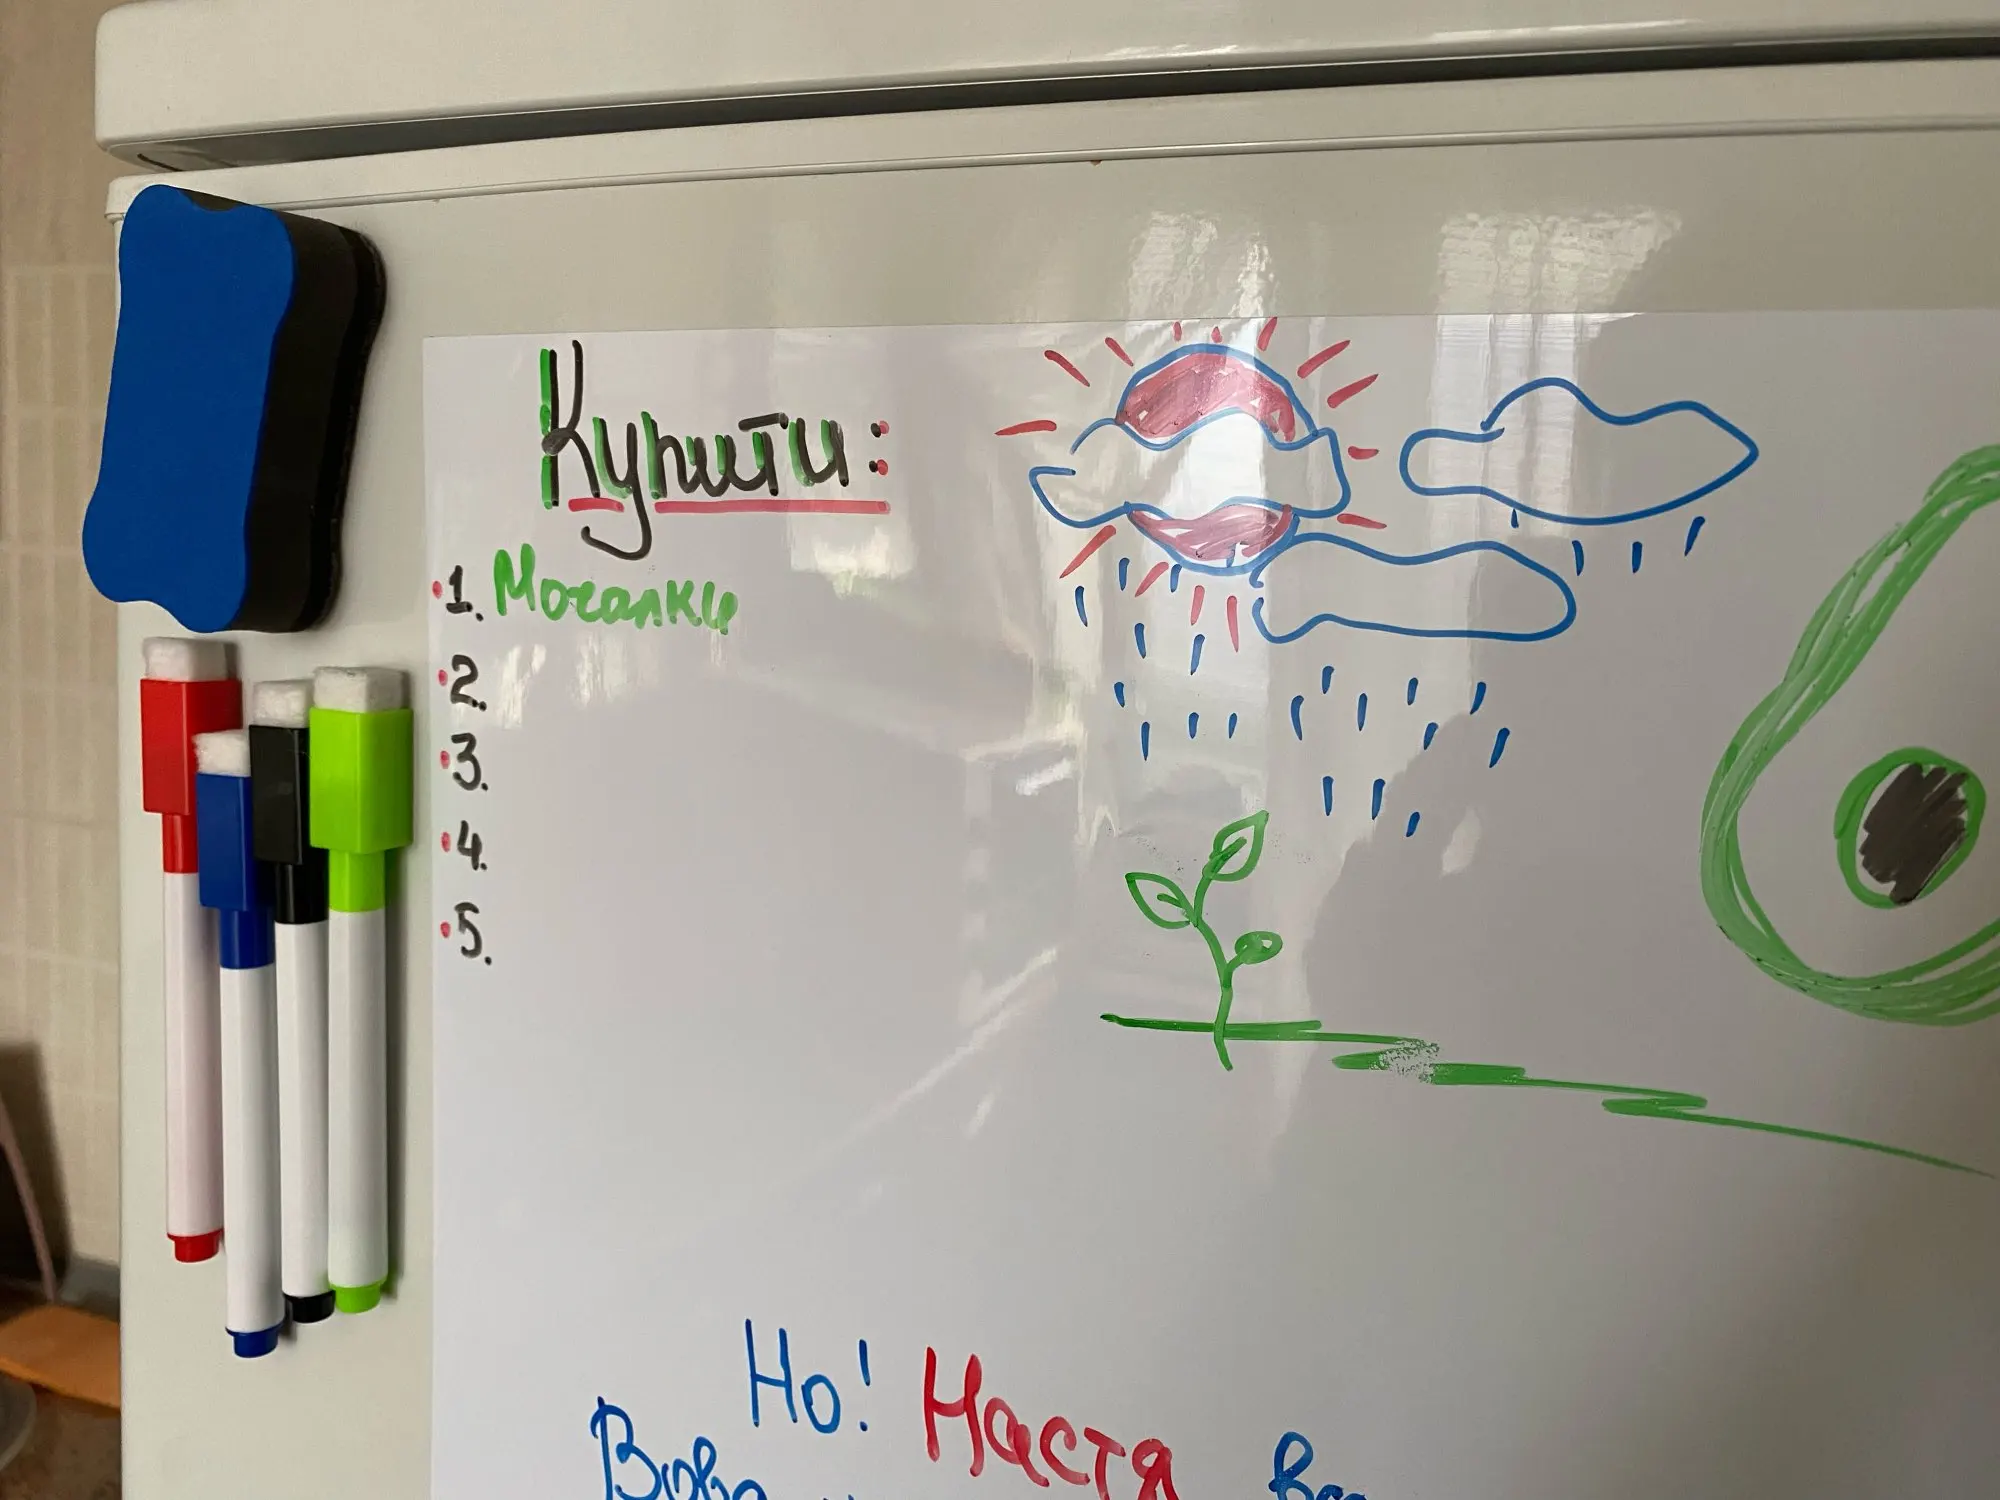 Купити:
1. Мочалки
2.
3.
4.
5.
Но! Настя
Вова